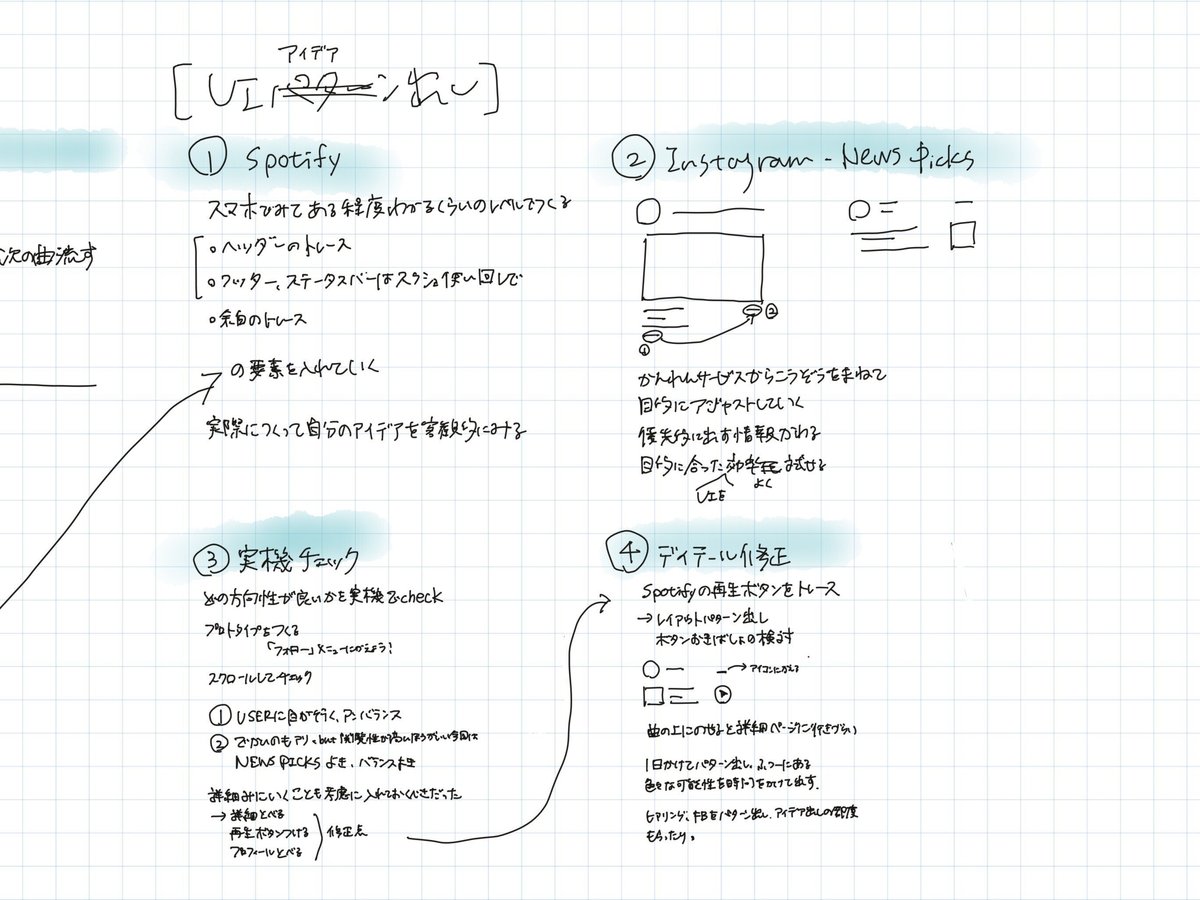 アイデア
[UIパターン出し]
次の曲流す
① Spotify
スマホでみてある程度わかるくらいのレベルでつくる
・ヘッダーのトレース
・フッター、ステータスバーはスクショ使い回しで
・余白のトレース
の要素を入れていく
実際につくって自分のアイデアを客観的にみる
② Instagram - News Picks
②
①
かんれんサービスからこうぞうをまねて
目的にアジャストしていく
優先的に出す情報かわる
目的に合った効率を試せる
UIを よく
③ 実機チェック
どの方向性が良いかを実機でcheck
プロトタイプをつくる
「フォロー」メニューにかえよう!
スクロールしてチェック
① USERに目がそうく、アンバランス
② でかいのもアリ。but 閲覧性が高いほうがいい今回は
NEWS PICKSよき、バランスよき
詳細みにいくことも考慮に入れておくべきだった
→ 詳細とべる
再生ボタンつける
プロフィールとべる
修正点
④ ディテール修正
Spotifyの再生ボタンをトレース
→ レイアウトパターン出し
ボタンおきばしょの検討
→ アイコンにかえる
曲の上にのせると詳細ページに行きづらい
1日かけてパターン出し、ふつーにある
色々な可能性を時間をかけて出す.
ヒアリング、FBをパターン出し、アイデア出しの都度
もらったり。